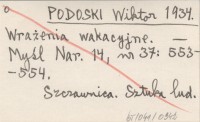 PODOSKI Wiktor 1934.
Wrażenia wakacyjne. —
Myśl Nar. 14, nr 37: 553-
-554.
Szczawnica. Sztuka lud.